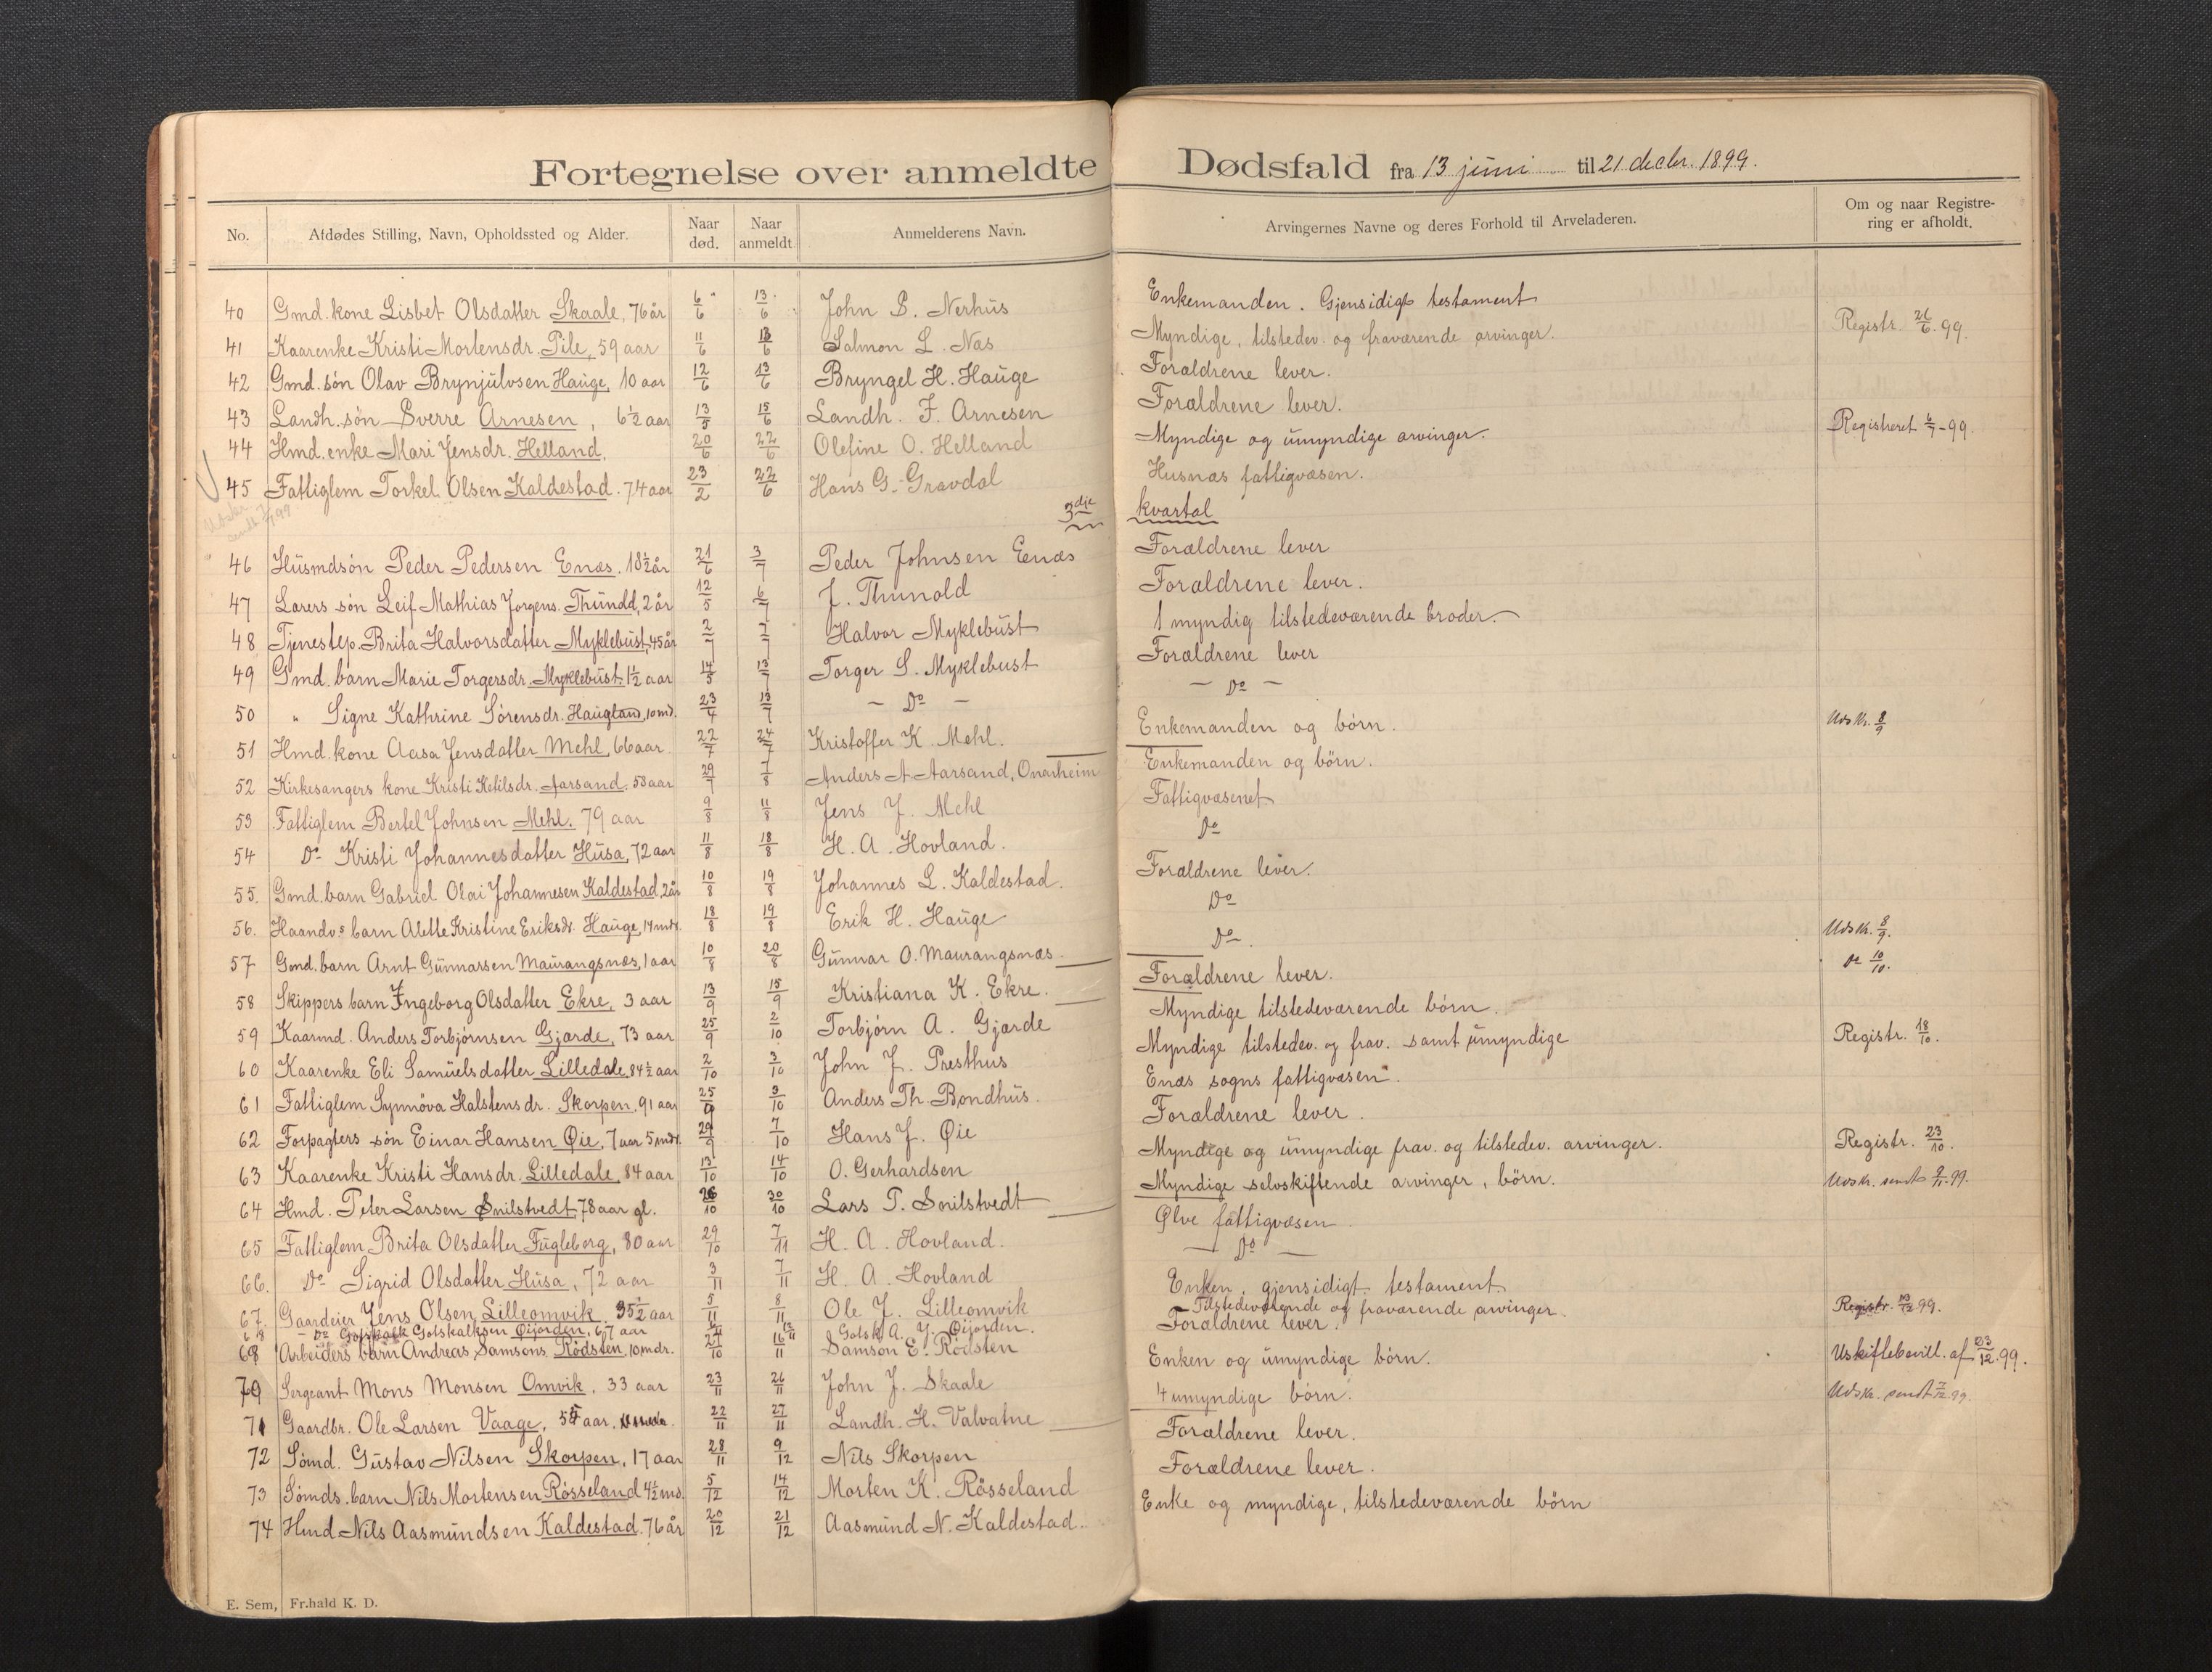 Fortegnelse over anmeldte Dødsfald fra 13 juni til 21 decbr. 1899.
No. Afdødes Stilling, Navn, Opholdssted og Alder. Naar død. Naar anmeldt. Anmelderens Navn. Arvingernes Navne og deres Forhold til Arveladeren. Om og naar Registrering er afholdt.
40 Gmd. kone Lisbet Olsdatter Skaale, 76 år 6/6 13/6 John S. Nerhus Enkemanden. Gjensidigt testament
41 Kaarenke Kristi Mortensdr. Pile, 59 aar 11/6 13/6 Salmon L. Næs Myndige, tilstedev. og fraværende arvinger. Registr. 26/6. 99.
42 Gmd. søn Olav Brynjulvsen Hauge, 10 aar 12/6 13/6 Bryngel H. Hauge Forældrene lever.
43 Landh. søn Sverre Arnesen, 6 1/2 aar 13/5 15/6 Landh. F. Arnesen Forældrene lever.
44 Hmd. enke Mari Jensdr. Helland. 20/6 22/6 Olefine O. Helland Myndige og umyndige arvinger. Registreret 6/7-99.
45 Fattiglem Torkel Olsen Kaldestad. 74 aar 23/2 22/6 Hans G. Gravdal Husnæs fattigvæsen.
3die kvartal
46 Husmdsøn Peder Pedersen Enæs. 18 1/2 år 21/6 3/7 Peder Johnsen Eenæs Forældrene lever
47 Lærers søn Leif Mathias Jørgens. Thunold, 2 år 12/5 6/7 J. Thunold Forældrene lever.
48 Tjenestep. Brita Halvorsdatter Myklebust, 45 år 2/7 7/7 Halvor Myklebust 1 myndig tilstedeværende broder.
49 Gmd. barn Marie Torgersdr. Myklebust. 1 1/2 aar 14/5 13/7 Torger S. Myklebust Forældrene lever
50 " Signe Kathrine Sørensdr. Haugland, 10 md. 23/4 13/7 - Do - - Do -
51 Hmd. kone Aasa Jensdatter Mehl, 66 aar. 22/7 24/7 Kristoffer K. Mehl. Enkemanden og børn. Udskr. 8/9
52 Kirkesangers kone Kristi Ketilsdr. Aarsand. 58 aar 29/7 7/8 Anders A. Aarsand, Onarheim Enkemanden og børn.
53 Fattiglem Bertel Johnsen Mehl. 79 aar 9/8 11/8 Jens J. Mehl Fattigvæsenet
54 Do Kristi Johannesdatter Husa, 72 aar 11/8 18/8 H. A. Hovland. Do
55. Gmd. barn Gabriel Olai Johannesen Kaldestad. 2 år 10/8 19/8 Johannes L. Kaldestad. Forældrene lever.
56. Haandvs barn Alette Kristine Eriksdr. Hauge, 14 mdr. 18/8 19/8 Erik H. Hauge Do
57 Gmd. barn Arnt Gunnarsen Maurangsnæs, 1 aar 10/8 20/8 Gunnar O. Maurangsnæs. Do. Udskr. 8/9.
58 Skippers barn Ingeborg Olsdatter Ekre, 3 aar 13/9 15/9 Kristiana K. Ekre. Forældrene lever. Do 10/10.
59 Kaarmd. Anders Torbjørnsen Gjærde, 73 aar 25/9 2/10 Torbjørn A. Gjærde Myndige tilstedeværende børn.
60 Kaarenke Eli Samuelsdatter Lilledale. 84 1/2 aar 2/10 3/10 John J. Presthus Myndige tilstedev. og frav. samt umyndige Registr. 18/10.
61 Fattiglem Synnøva Halstensdr. Skorpen. 91 aar 25/9 3/10 Anders Th. Bondhus. Enæs sogns fattigvæsen.
62 Forpagters søn Einar Hansen Øie, 7 aar 5 mdr. 29/9 7/10 Hans J. Øie Forældrene lever.
63 Kaarenke Kristi Hansdr. Lilledale, 84 aar 13/10 14/10 O. Gerhardsen Myndige og umyndige frav. og tilstedev. arvinger. Registr. 23/10.
64 Hmd. Peter Larsen Snilstvedt, 78 aar gl. 26/10 30/10 Lars P. Snilstvedt Myndige selvskiftende arvinger, børn. Udskr. sendt 9/11 99.
65 Fattiglem Brita Olsdatter Fugleberg, 80 aar 29/10 7/11 H. A. Hovland. Ølve fattigvæsen.
66. Do Sigrid Olsdatter Husa, 72 aar 3/11 7/11 H. A. Hovland - Do -
67. Gaardeier Jens Olsen Lilleomvik. 35 1/2 aar 5/11 8/11 Ole J. Lilleomvik Enken, gjensidigt testament
68 - Do Gotskalk Gotskalksen Øijorden, 67 aar Gotsk A. Y. Øijorden. Tilstedeværende og fraværende arvinger. Registr. 13/12 99.
68 Arbeiders barn Andreas Samsons. Rødsten, 10 mdr. 27/10 16/11 Samson E. Rødsten Forældrene lever.
70 Sergeant Mons Monsen Omvik. 33 aar 23/11 26/11 John J. Skaale Enken og umyndige børn. Uskiftebevill. af 23/12. 99.
71 Gaardbr. Ole Larsen Vaage, 55 aar. 22/11 27/11 Landh. H. Valvatne 4 umyndige børn. Udskr. sendt 7/12 99.
72 Sømd. Gustav Nilsen Skorpen, 17 aar 28/11 9/12 Nils Skorpen Forældrene lever.
73 Sømds. barn Nils Mortensen Røsseland 4 1/2 md. 5/12 14/12 Morten K. Røsseland Forældrene lever.
74 Hmd Nils Aasmundsen Kaldestad. 76 år 20/12 21/12 Aasmund N. Kaldestad. Enke og myndige, tilstedeværende børn
E. Sem, Fr.hald K. D.